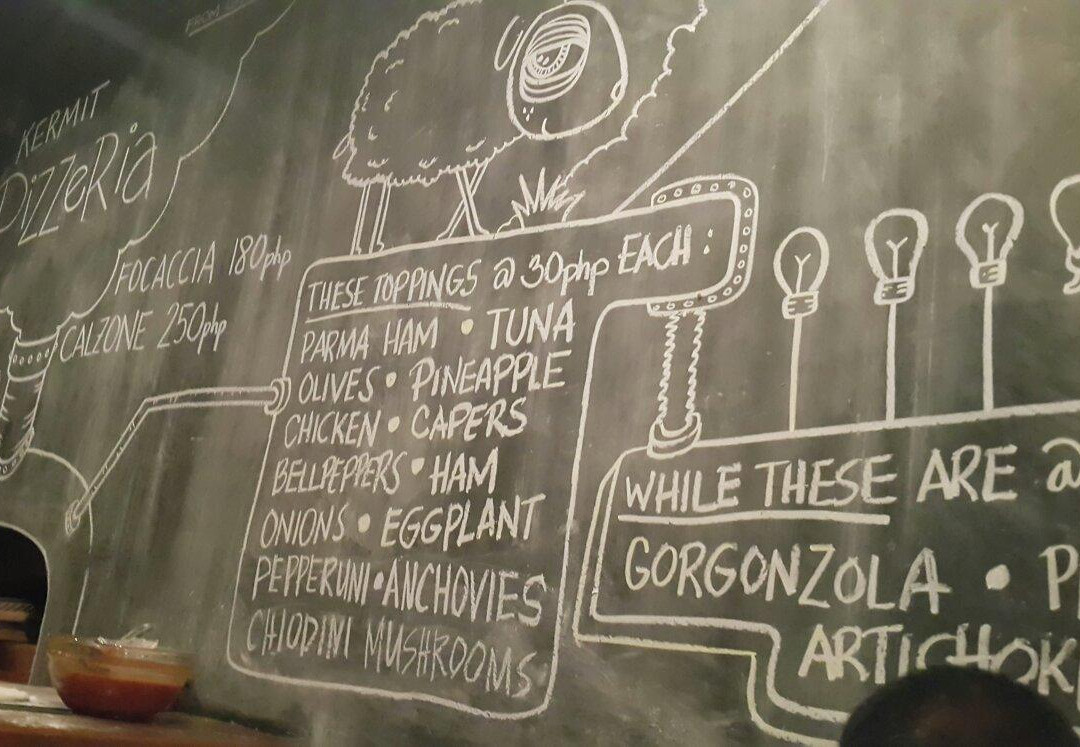 KERMIT
PiZZeRia
FOCACCIA 180php
CALZONE 250php
THESE TOPPINGS @ 30php EACH:
PARMA HAM • TUNA
OLIVES • PINEAPPLE
CHICKEN • CAPERS
BELLPEPPERS • HAM
ONIONS • EGGPLANT
PEPPERUNI • ANCHOVIES
CHIODINI MUSHROOMS
WHILE THESE ARE @
GORGONZOLA •
ARTICHOK